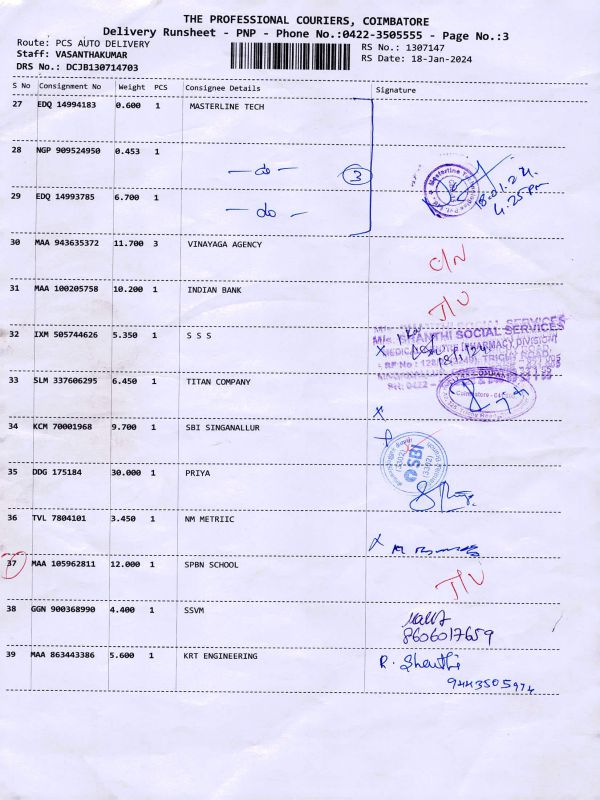 THE PROFESSIONAL COURIERS, COIMBATORE
Delivery Runsheet - PNP - Phone No.:0422-3505555 - Page No.:3
Route: PCS AUTO DELIVERY
RS No.: 1307147
Staff: VASANTHAKUMAR
RS Date: 18-Jan-2024
DRS No.: DCJB130714703
S No Consignment No Weight PCS Consignee Details Signature
27 EDQ 14994183 0.600 1 MASTERLINE TECH
28 NGP 909524950 0.453 1
-do- 3
18.01.24.
4.25pm
29 EDQ 14993785 6.700 1
-do-
30 MAA 943635372 11.700 3 VINAYAGA AGENCY
C/N
31 MAA 100205758 10.200 1 INDIAN BANK
I/U
M/s. SHANTHI SOCIAL SERVICES
32 IXM 505744626 5.350 1 S S S
X
(PHARMACY DIVISION)
18/1/24
TRICHY ROAD,
33 SLM 337606295 6.450 1 TITAN COMPANY
X
34 KCM 70001968 9.700 1 SBI SINGANALLUR
SBI
35 DDG 175184 30.000 1 PRIYA
36 TVL 7804101 3.450 1 NM METRIIC
X
37 MAA 105962811 12.000 1 SPBN SCHOOL
I/U
38 GGN 900368990 4.400 1 SSVM
8606017659
39 MAA 863443386 5.600 1 KRT ENGINEERING
R. Shanthi
9443505974